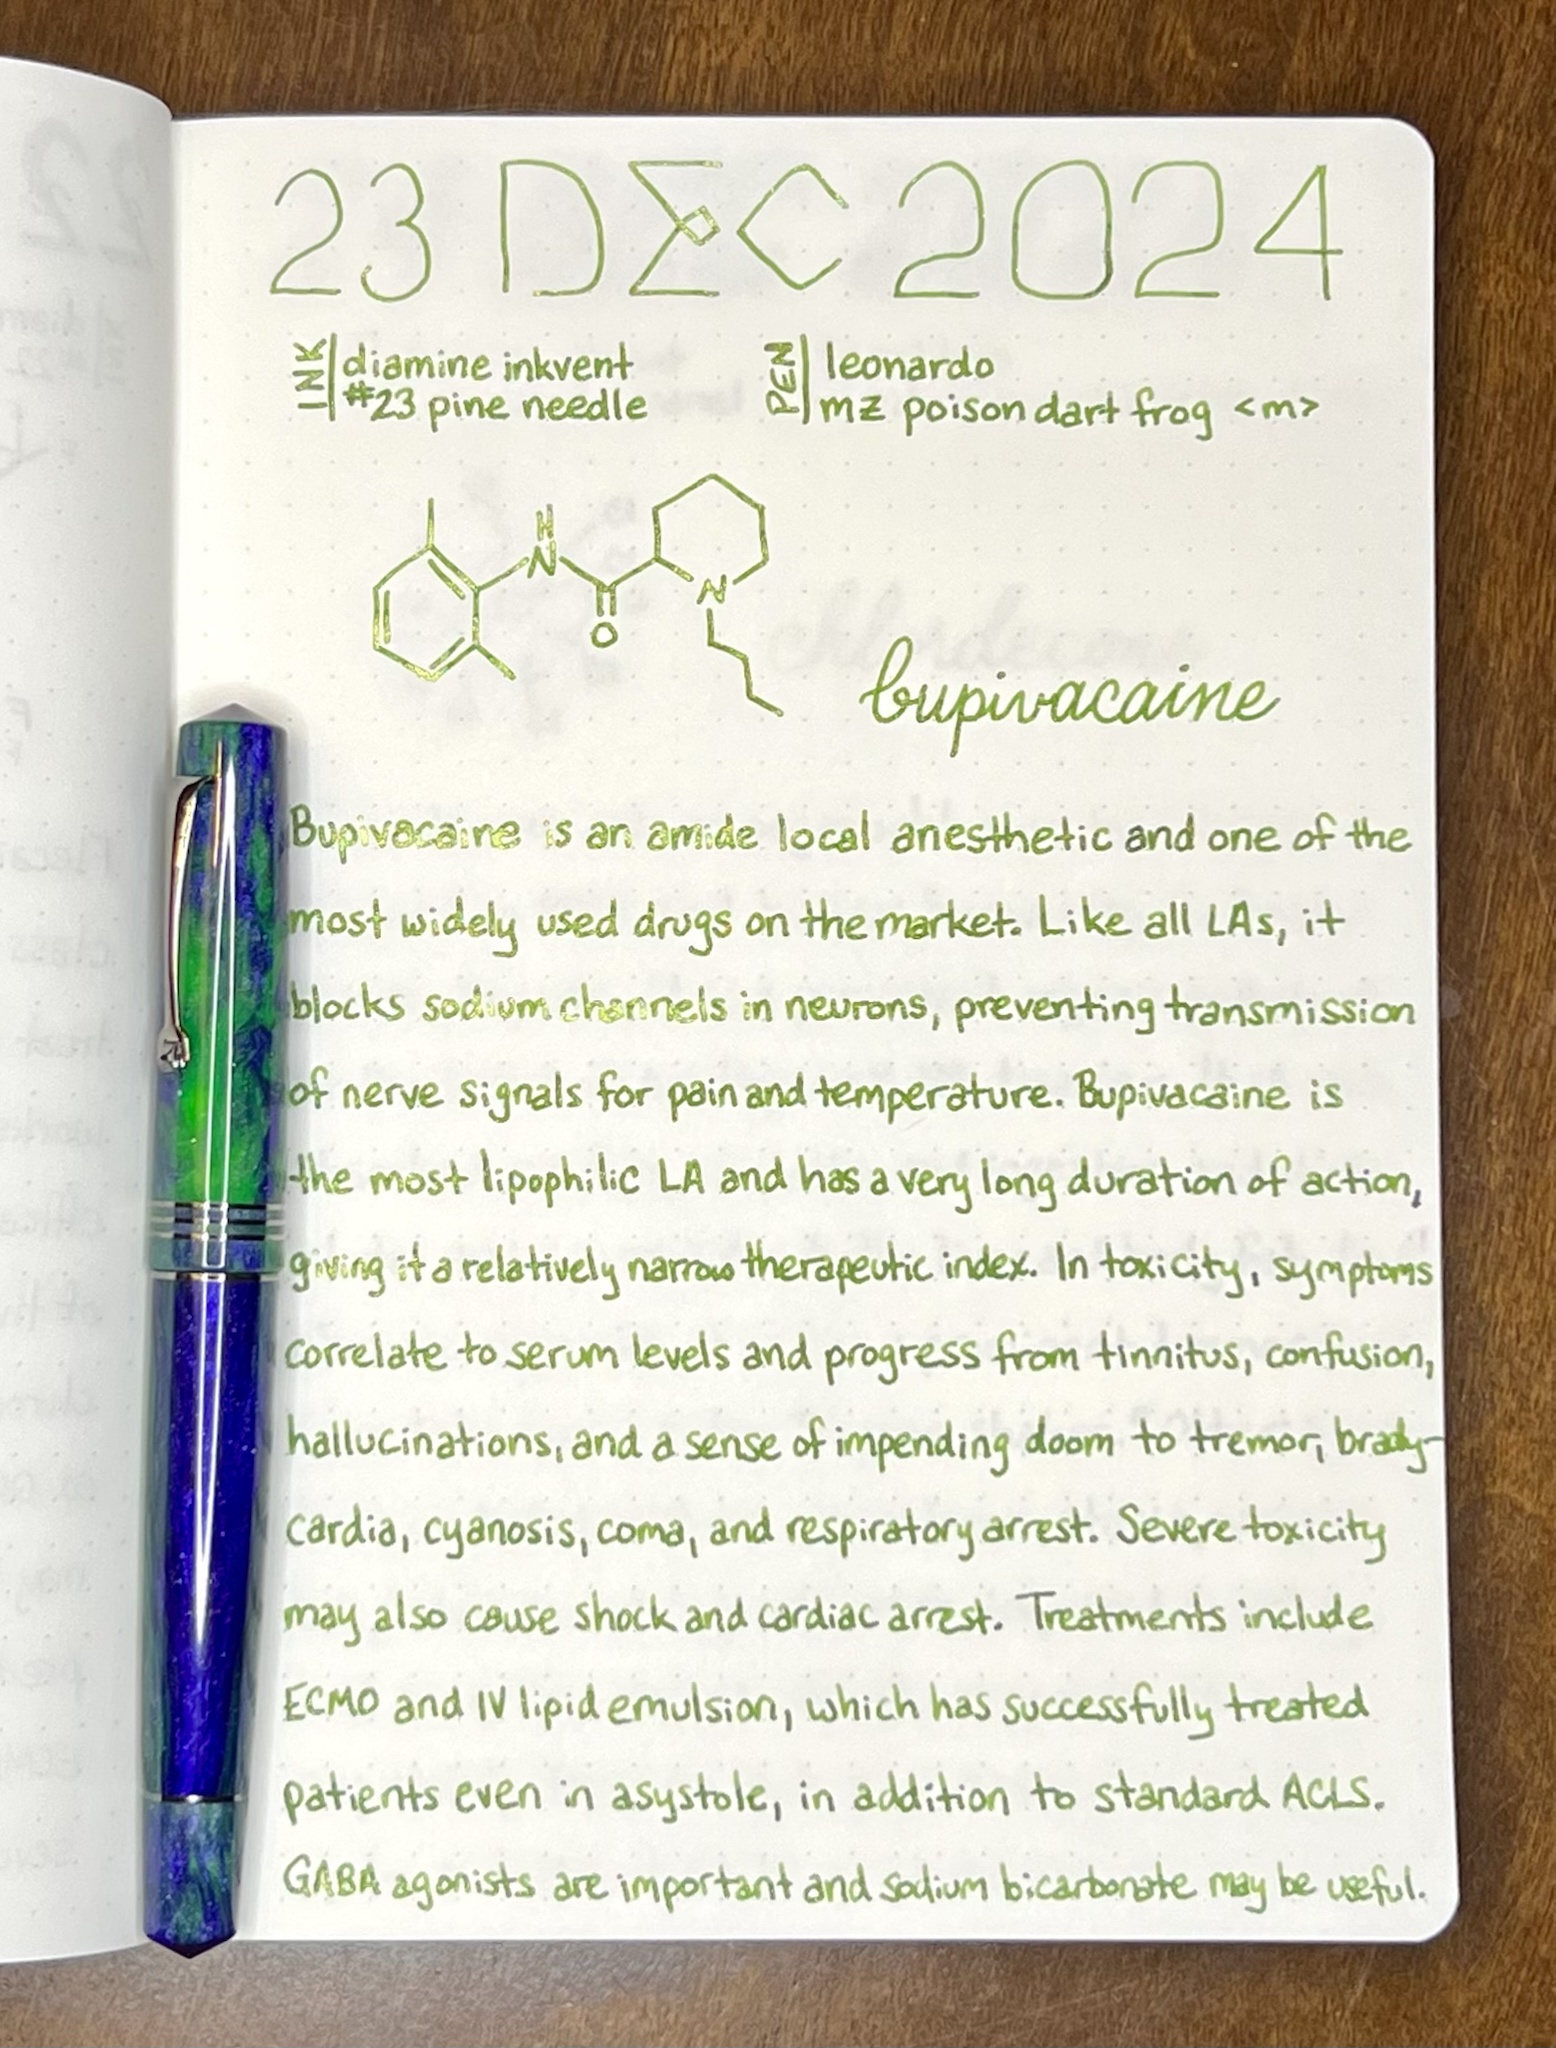 23 DEC 2024
INK
diamine inkvent
#23 pine needle
PEN
leonardo
mz poison dart frog <m>
H
N
O
N
bupivacaine
Bupivacaine is an amide local anesthetic and one of the
most widely used drugs on the market. Like all LAs, it
blocks sodium channels in neurons, preventing transmission
of nerve signals for pain and temperature. Bupivacaine is
the most lipophilic LA and has a very long duration of action,
giving it a relatively narrow therapeutic index. In toxicity, symptoms
correlate to serum levels and progress from tinnitus, confusion,
hallucinations, and a sense of impending doom to tremor, brady-
cardia, cyanosis, coma, and respiratory arrest. Severe toxicity
may also cause shock and cardiac arrest. Treatments include
ECMO and IV lipid emulsion, which has successfully treated
patients even in asystole, in addition to standard ACLS.
GABA agonists are important and sodium bicarbonate may be useful.